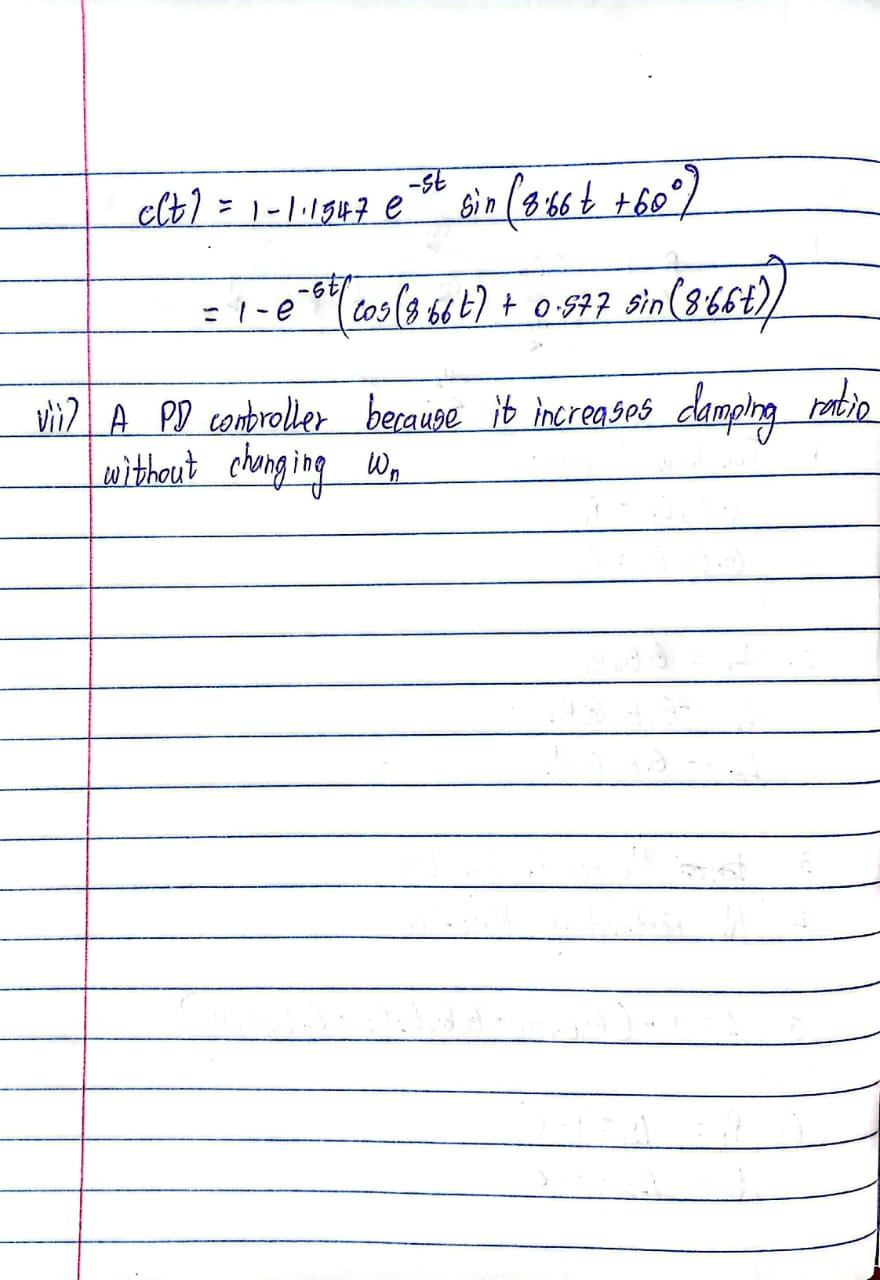 c(t) = 1-1.1547 e^-5t sin(8.66t +60°)
= 1-e^-5t(cos(8.66t) + 0.577 sin(8.66t))
vii) A PD controller because it increases damping ratio
without changing ωn